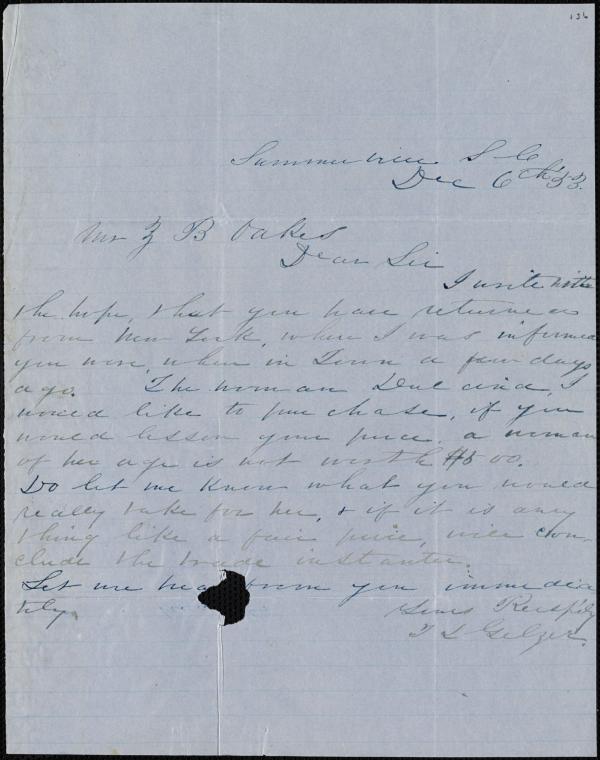 136
Summerville S C
Dec 6th 53.
Mr Z B Oakes
Dear Sir
I write with
the hope, that you have returned
from New York, where I was informed
you were, when in Town a few days
ago. The woman Dulcinda, I
would like to purchase, if you
would lesson your price. a woman
of her age is not worth $500.
Do let me know what you would
really take for her, & if it is any
thing like a fair price, will con-
clude the trade instanter.
Let me hea from you immedia
tely.
Yours Respfly
T L Gelzer.